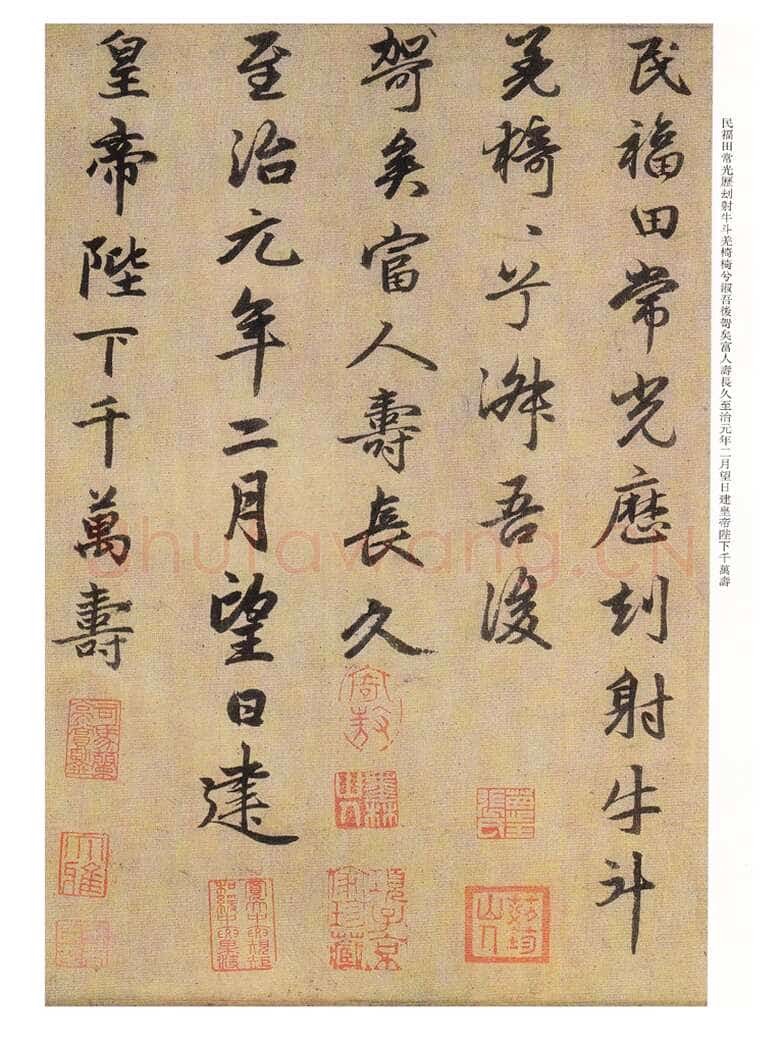 民福田常光歷劫射牛斗
羌椅〻兮淑吾後
哿矣富人壽長久
至治元年二月望日建
皇帝陛下千萬壽
墨林山人
項子京家珍藏
民福田常光歷劫射牛斗羌椅椅兮淑吾後哿矣富人壽長久至治元年二月望日建皇帝陛下千萬壽
shufawang.CN